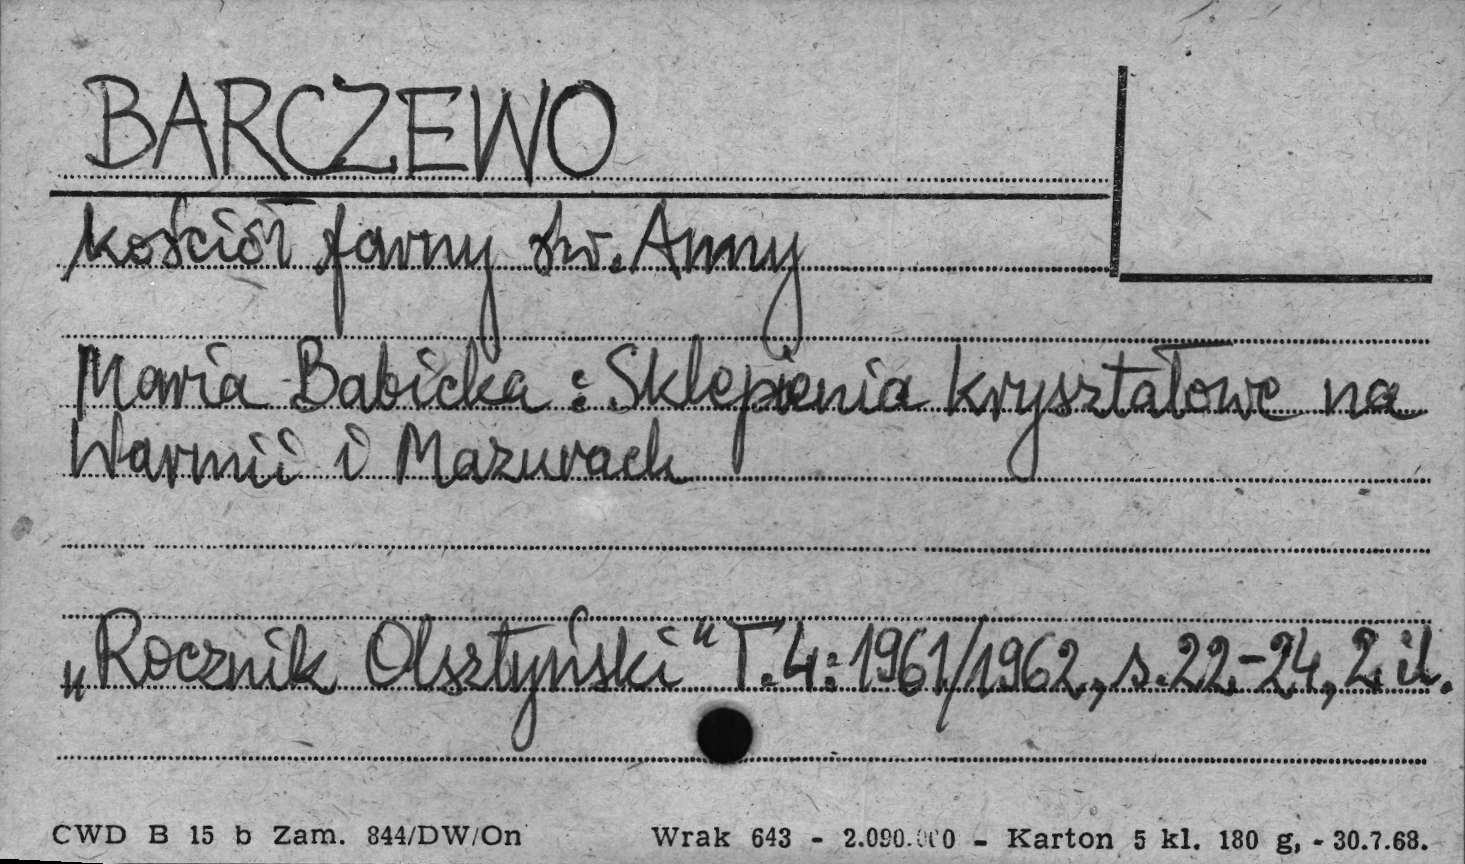 BARCZEWO
kościół farny św. Anny
Maria Babicka : Sklepienia kryształowe na
Warmii i Mazurach
„Rocznik Olsztyński" T.4: 1961/1962, s. 22-24, 2 il.
CWD B 15 b Zam. 844/DW/On Wrak 643 - 2.090.000 - Karton 5 kl. 180 g, - 30.7.68.